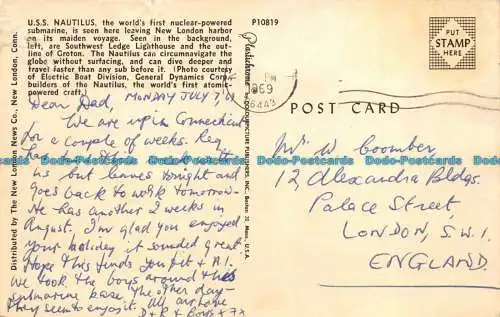 U.S.S. NAUTILUS, the world's first nuclear-powered
submarine, is seen here leaving New London harbor
on its maiden voyage. Seen in the background,
left, are Southwest Ledge Lighthouse and the out-
line of Groton. The Nautilus can circumnavigate the
globe without surfacing, and can dive deeper and
travel faster than any other
before it. (Photo courtesy
of Electric Boat Division, General Dynamics Corp.
builders of the Nautilus, the world's first atomic-
powered craft.)
P10819
Distributed by The New London News Co., New London, Conn.
Plastichrome
PM
1969
PUT
STAMP
HERE
POST CARD
Dear Dad, MONDAY JULY 7,
We are up in Connecticut
for a couple of weeks. Reg
has
us but leaves tonight and
goes back to work tomorrow.
He has another 2 weeks in
August. I'm glad you enjoyed
your holiday, it sounded great
Hope this finds you fit & A1.
We took the boys around the
submarine base the other day—
They seem to enjoy it. All our love
D & R & Boys x 7x
Mr. W Coomber
12, Alexandra Bldgs.
Palace Street,
LONDON, S.W.1.
ENGLAND.
Dodo-Postcards Dodo-Postcards Dodo-Postcards Dodo-Postcards